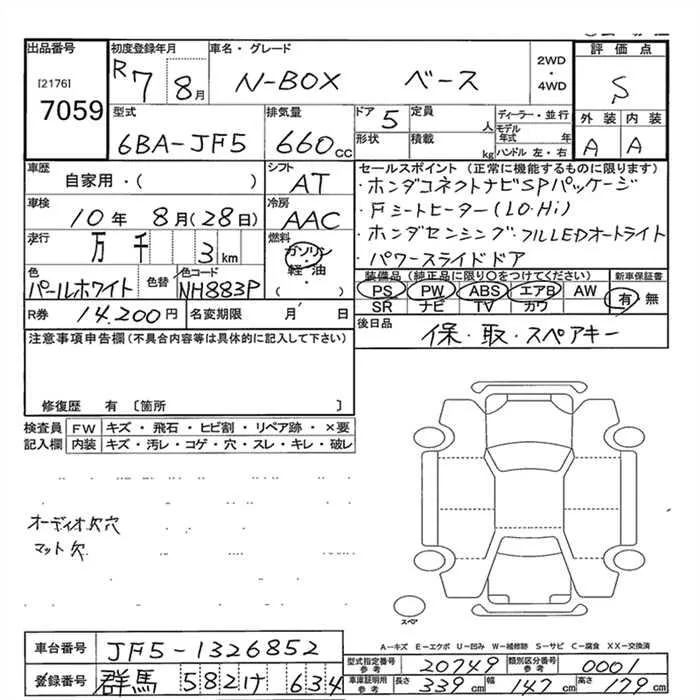 出品番号 初度登録年月 車名・グレード 評価点
[2176] R7 8月 N-BOX ベース 2WD・4WD S
7059
型式 排気量 ドア 5 定員 人 ディーラー・並行 外装 内装
6BA-JF5 660cc 形状 積載 kg モデル年式 年 ハンドル 左・右 A A
車歴 シフト セールスポイント (正常に機能するものに限ります)
自家用・( ) AT ・ホンダコネクトナビSPパッケージ
車検 冷房 ・Fシートヒーター(LO.Hi)
10年 8月(28日) AAC ・ホンダセンシング・フルLEDオートライト
走行 万 千 3 km 燃料 ガソリン・軽・油 ( ) ・パワースライドドア
色 色替 色コード 装備品(純正品に限り○をつけてください) 新車保証書
パールホワイト NH883P PS PW ABS エアB AW 有・無
SR ナビ TV カワ
R券 14,200円 名変期限 月 日 後日品 保・取・スペアキー
注意事項申告欄(不具合内容等は具体的に記入して下さい)
修復歴 有 〔箇所 〕
検査員 FW キズ・飛石・ヒビ割・リペア跡・×要
記入欄 内装 キズ・汚レ・コゲ・穴・スレ・キレ・破レ
オーディオ欠穴
マット欠
スペア
車台番号 JF5-1326852
A―キズ E―エクボ U―凹み W―補修跡 S―サビ C―腐食 XX―交換済
登録番号 群馬 582 け 634
型式指定番号 参考 20749 類別区分番号 参考 0001
車庫証明用 参考 長さ 339cm 幅 147cm 高さ 179cm